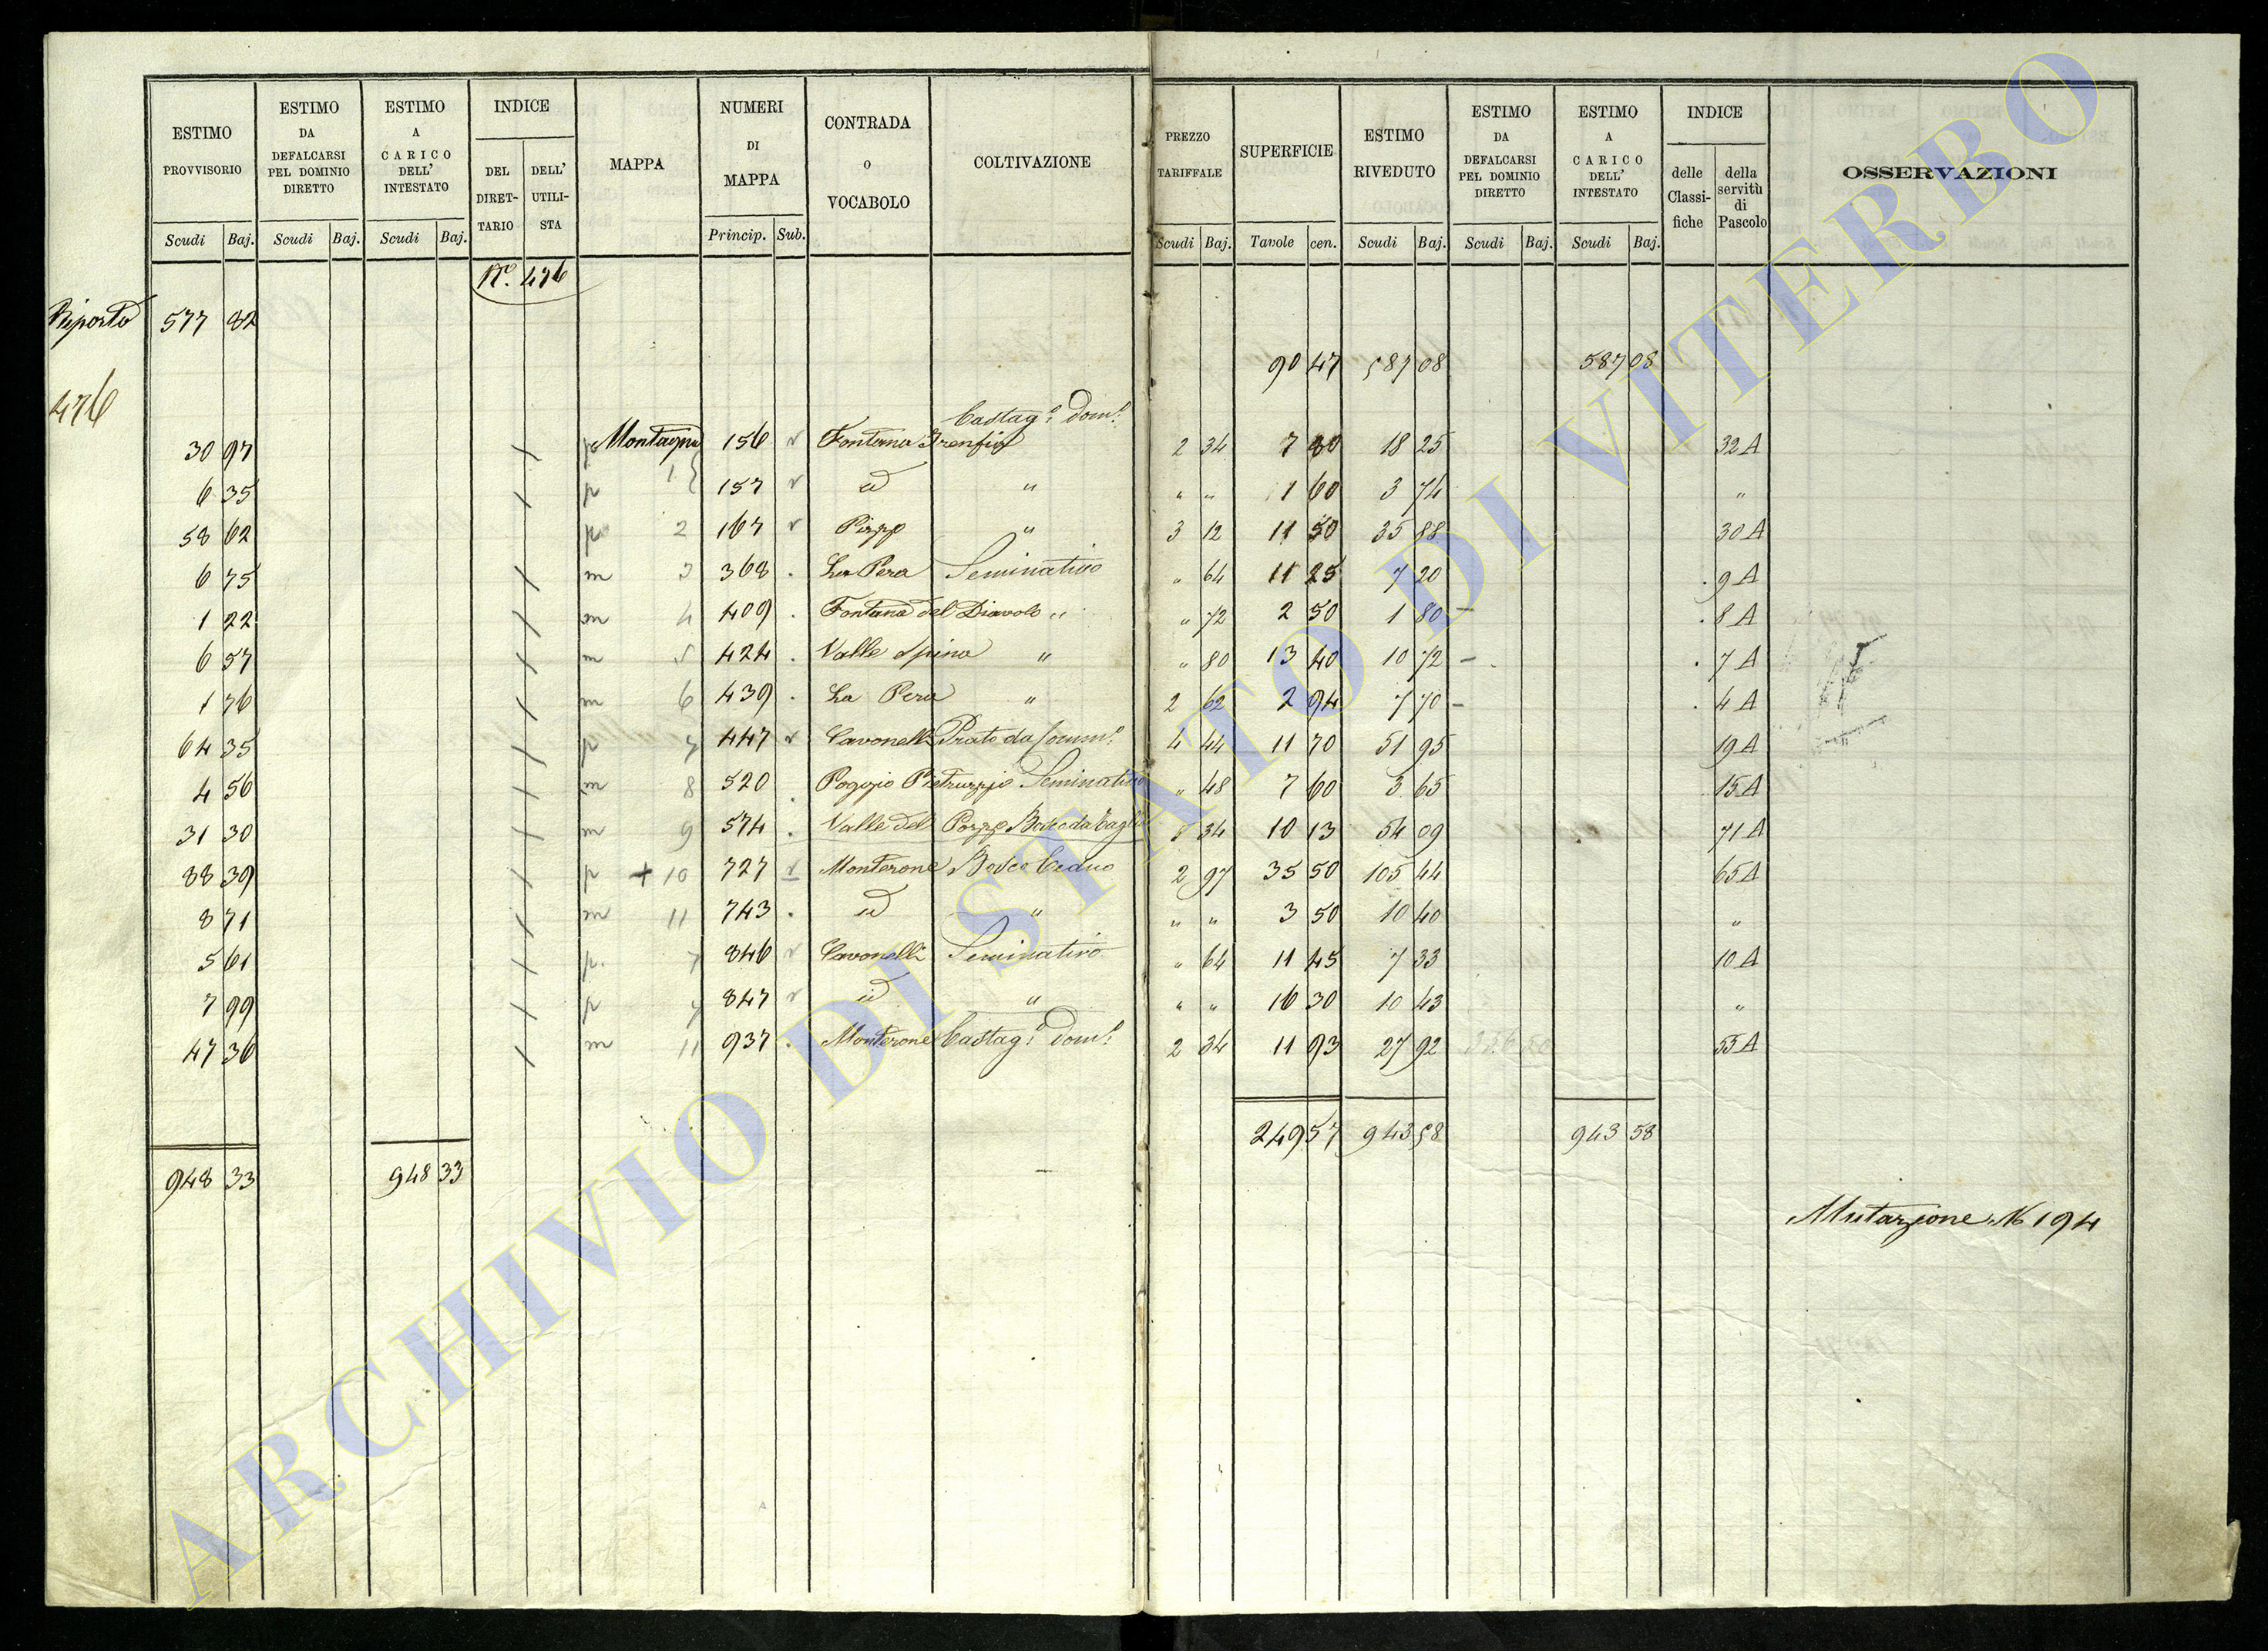 ESTIMO PROVVISORIO
ESTIMO DA DEFALCARSI PEL DOMINIO DIRETTO
ESTIMO A CARICO DELL' INTESTATO
INDICE
DEL DIRETTARIO
DELL' UTILISTA
MAPPA
NUMERI DI MAPPA
CONTRADA o VOCABOLO
COLTIVAZIONE
PREZZO TARIFFALE
SUPERFICIE
ESTIMO RIVEDUTO
ESTIMO DA DEFALCARSI PEL DOMINIO DIRETTO
ESTIMO A CARICO DELL' INTESTATO
INDICE
delle Classifiche
della servitù di Pascolo
OSSERVAZIONI
Scudi Baj. Scudi Baj. Scudi Baj. Princip. Sub. Scudi Baj. Tavole cen. Scudi Baj. Scudi Baj. Scudi Baj.
N.° 476
Riporto 577 82
90 47 587 08 587 08
476
Castag.° dom.°
30 97 p Montagna 156 v Fontana 2 34 7 80 18 25 32 A
6 35 p 1 157 v id " " " 1 60 3 74 "
58 62 p 2 167 v Pozzo " 3 12 11 50 35 88 30 A
6 75 m 3 368 . La Pera Seminativo " 64 11 25 7 20 . 9 A
1 22 m 4 409 . Fontana del Diavolo " " 72 2 50 1 80 – . 8 A
6 57 m 5 424 . Valle Spina " " 80 13 40 10 72 – . 7 A
1 76 m 6 439 . La Pera " 2 62 2 94 7 70 – . 4 A
64 35 p 7 447 v Cavonelli Prato da Somm.° 4 44 11 70 51 95 19 A
4 56 m 8 520 . Poggio Pietruzzje Seminativo " 48 7 60 3 65 15 A
31 30 m 9 574 . Valle del Pozzo Bosco da Taglio 34 10 13 54 09 71 A
88 39 p + 10 727 v Monterone Bosco Ceduo 2 97 35 50 105 44 65 A
8 71 m 11 743 . id " " " 3 50 10 40 "
5 61 p. 7 846 v Cavonelli Seminativo " 64 11 45 7 33 10 A
7 99 p 7 847 v id " " " 16 30 10 43 "
47 36 m 11 937 . Monterone Castag.° dom.° 2 34 11 93 27 92 55 A
249 57 943 58 943 58
948 33 948 33
Mutazione N° 194
ARCHIVIO DI STATO DI VITERBO